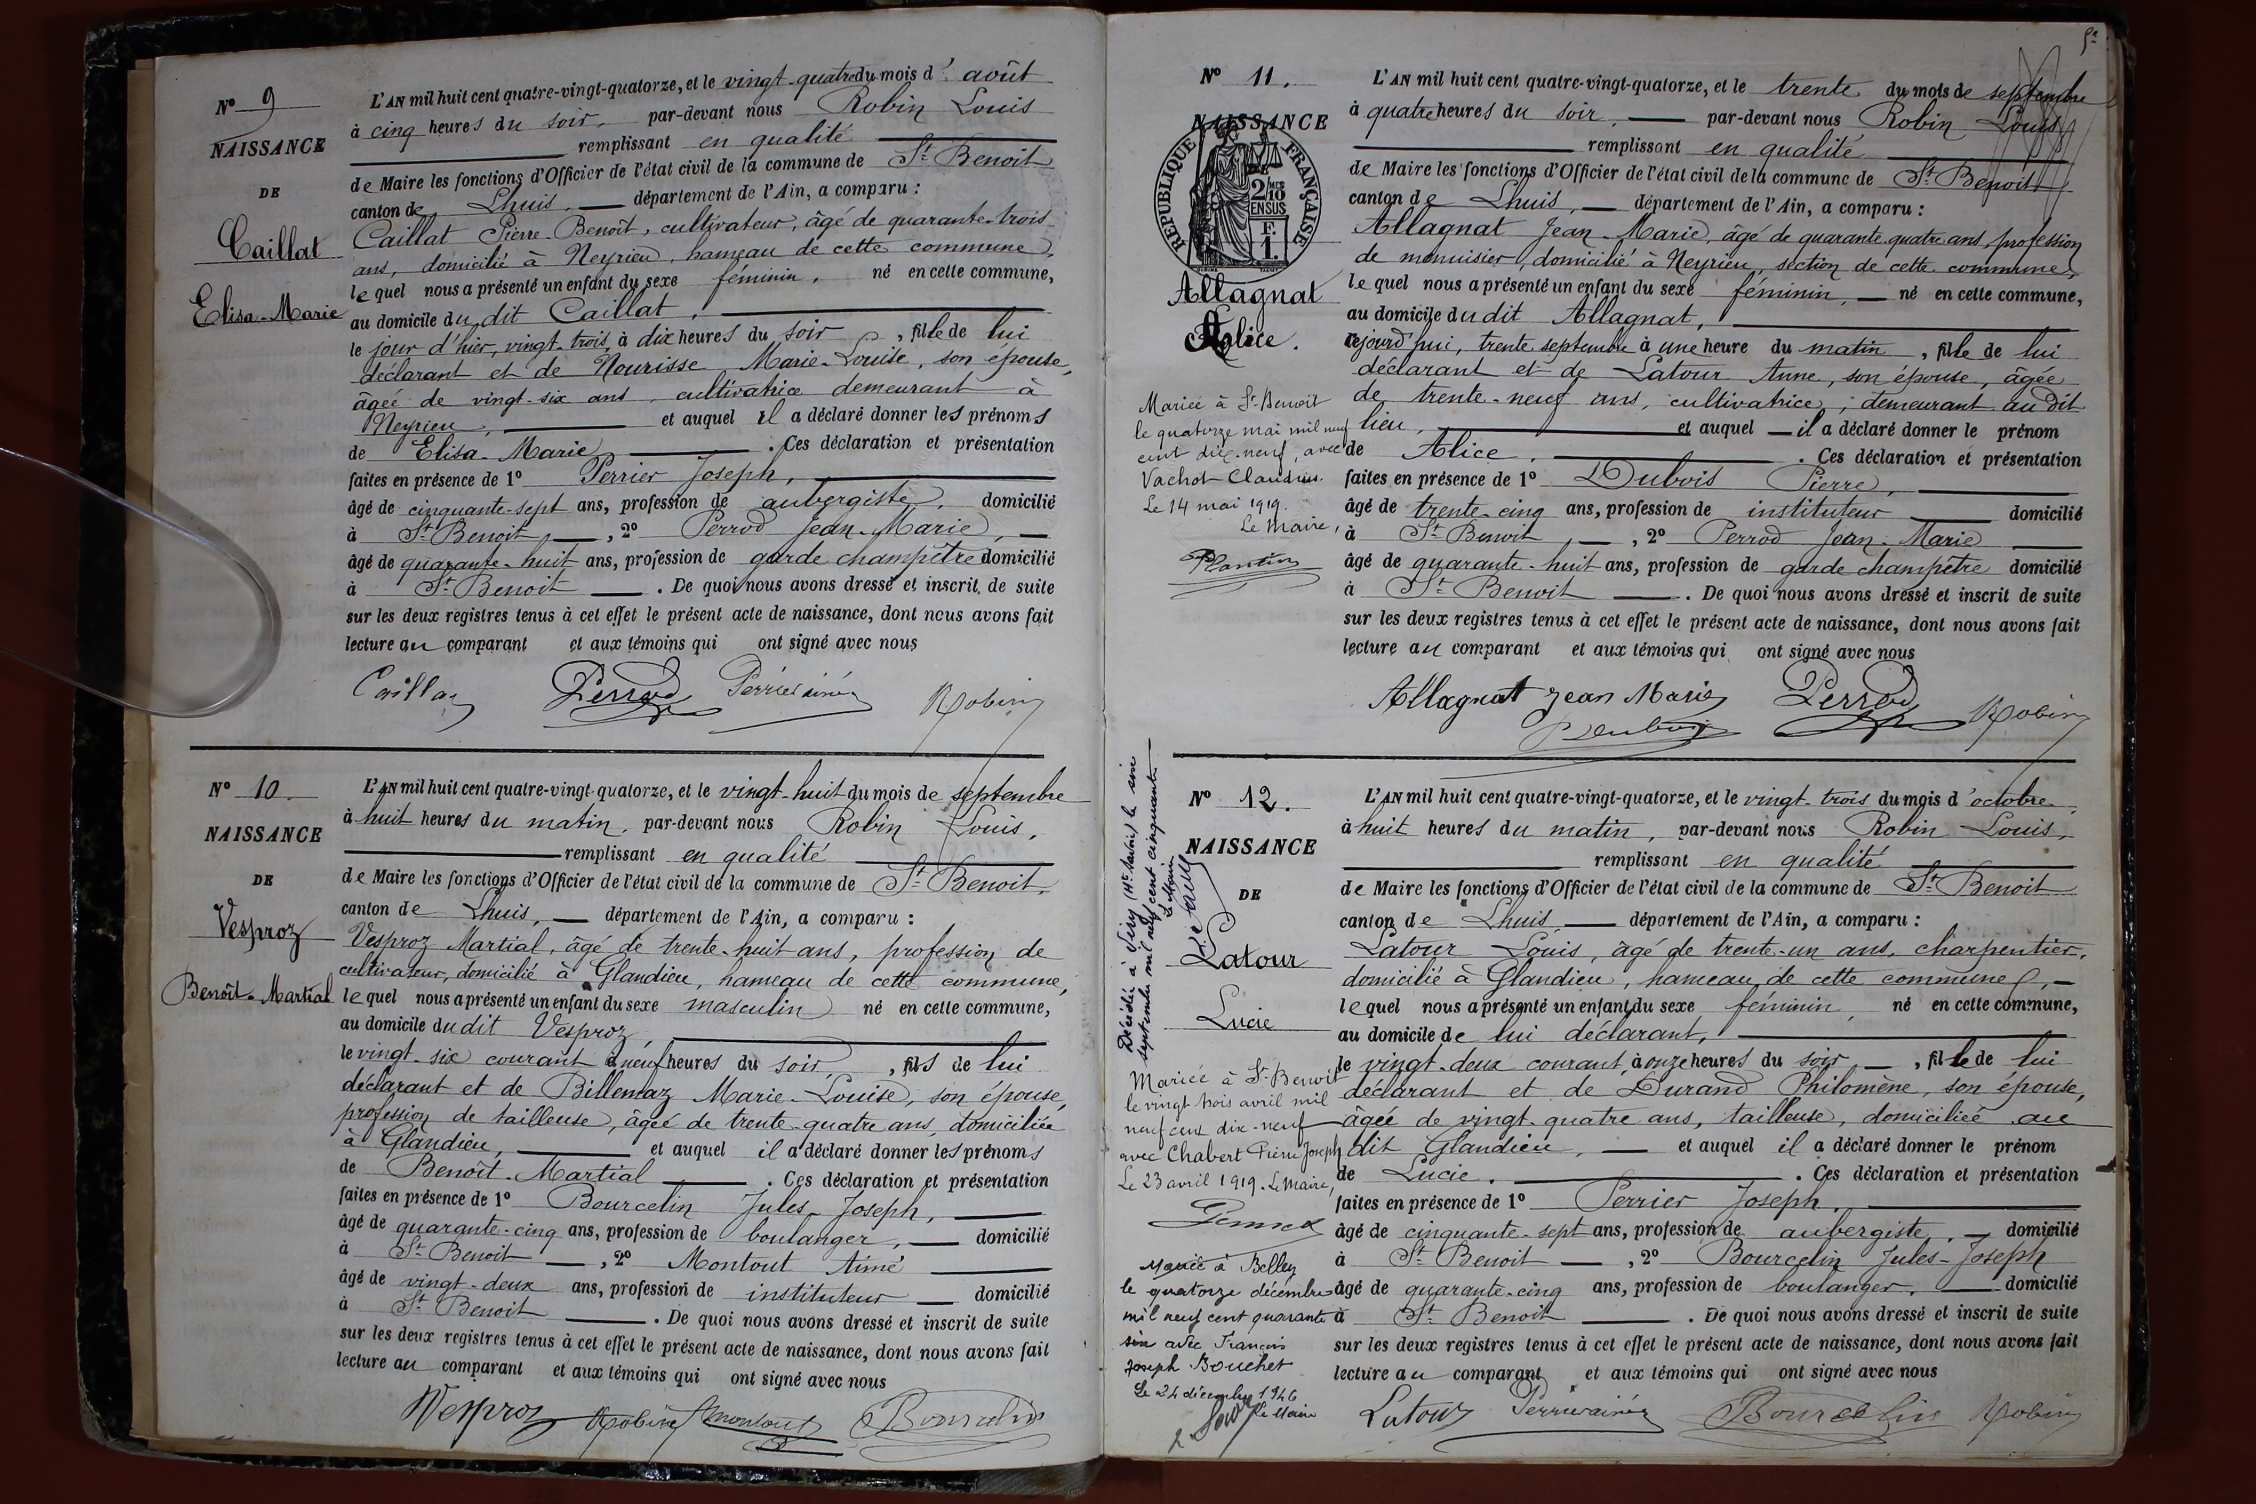 N° 9
NAISSANCE
DE
Caillat
Elisa-Marie
L'AN mil huit cent quatre-vingt-quatorze, et le vingt-quatre du mois d'août
à cinq heures du soir, par-devant nous Robin Louis
remplissant en qualité
de Maire les fonctions d'Officier de l'état civil de la commune de St Benoit
canton de Lhuis, département de l'Ain, a comparu :
Caillat Pierre-Benoît, cultivateur, âgé de quarante-trois
ans, domicilié à Neyrieu, hameau de cette commune,
lequel nous a présenté un enfant du sexe féminin, né en cette commune,
au domicile du dit Caillat,
le jour d'hier, vingt-trois, à dix heures du soir, fille de lui
déclarant et de Nourisse Marie-Louise, son épouse,
âgée de vingt-six ans, cultivatrice demeurant à
Neyrieu, et auquel il a déclaré donner les prénoms
de Elisa-Marie. Ces déclaration et présentation
faites en présence de 1° Perrier Joseph,
âgé de cinquante-sept ans, profession de aubergiste, domicilié
à St Benoit, 2° Perrod Jean-Marie,
âgé de quarante-huit ans, profession de garde champêtre domicilié
à St Benoit. De quoi nous avons dressé et inscrit de suite
sur les deux registres tenus à cet effet le présent acte de naissance, dont nous avons fait
lecture au comparant et aux témoins qui ont signé avec nous
Caillat Perrod Perrier ainé Robin
N° 10.
NAISSANCE
DE
Vesproz
Benoît-Martial
L'AN mil huit cent quatre-vingt-quatorze, et le vingt-huit du mois de septembre
à huit heures du matin, par-devant nous Robin Louis,
remplissant en qualité
de Maire les fonctions d'Officier de l'état civil de la commune de St Benoit,
canton de Lhuis, département de l'Ain, a comparu :
Vesproz Martial, âgé de trente-huit ans, profession de
cultivateur, domicilié à Glandieu, hameau de cette commune,
lequel nous a présenté un enfant du sexe masculin né en cette commune,
au domicile du dit Vesproz
le vingt-six courant à neuf heures du soir, fils de lui
déclarant et de Billemaz Marie-Louise, son épouse,
profession de tailleuse, âgée de trente-quatre ans, domiciliée
à Glandieu, et auquel il a déclaré donner les prénoms
de Benoît-Martial. Ces déclaration et présentation
faites en présence de 1° Bourcelin Jules-Joseph,
âgé de quarante-cinq ans, profession de boulanger, domicilié
à St Benoit, 2° Montout Aimé
âgé de vingt-deux ans, profession de instituteur domicilié
à St Benoit. De quoi nous avons dressé et inscrit de suite
sur les deux registres tenus à cet effet le présent acte de naissance, dont nous avons fait
lecture au comparant et aux témoins qui ont signé avec nous
Vesproz Robin Amontout Bourcelin
5e
N° 11.
NAISSANCE
DE
RÉPUBLIQUE FRANÇAISE
2/10 EN SUS
F. 1.
Allagnat
Alice.
Mariée à St-Benoit
le quatorze mai mil neuf
cent dix-neuf, avec
Vachot Claudius.
Le 14 mai 1919.
Le Maire,
Plantin
L'AN mil huit cent quatre-vingt-quatorze, et le trente du mois de septembre
à quatre heures du soir, par-devant nous Robin Louis
remplissant en qualité
de Maire les fonctions d'Officier de l'état civil de la commune de St Benoit
canton de Lhuis, département de l'Ain, a comparu :
Allagnat Jean-Marie, âgé de quarante-quatre ans, profession
de menuisier, domicilié à Neyrieu, section de cette commune,
lequel nous a présenté un enfant du sexe féminin, né en cette commune,
au domicile du dit Allagnat,
cejourd'hui, trente septembre à une heure du matin, fille de lui
déclarant et de Latour Anne, son épouse, âgée
de trente-neuf ans, cultivatrice, demeurant au dit
lieu, et auquel il a déclaré donner le prénom
de Alice. Ces déclaration et présentation
faites en présence de 1° Dubois Pierre,
âgé de trente-cinq ans, profession de instituteur domicilié
à St Benoit, 2° Perrod Jean-Marie
âgé de quarante-huit ans, profession de garde champêtre domicilié
à St Benoit. De quoi nous avons dressé et inscrit de suite
sur les deux registres tenus à cet effet le présent acte de naissance, dont nous avons fait
lecture au comparant et aux témoins qui ont signé avec nous
Allagnat Jean Marie Perrod Robin
P Dubois
N° 12.
NAISSANCE
DE
Latour
Lucie
Décédée à (Hte Savoie) le six
septembre mil neuf cent cinquante
Le Maire
Mariée à St-Benoit
le vingt trois avril mil
neuf cent dix-neuf
avec Chabert Pierre Joseph
Le 23 avril 1919. Le Maire,
Mariée à Belley
le quatorze décembre
mil neuf cent quarante
six avec François
Joseph Bouchet
Le 24 décembre 1946
Le Maire
L'AN mil huit cent quatre-vingt-quatorze, et le vingt-trois du mois d'octobre,
à huit heures du matin, par-devant nous Robin Louis,
remplissant en qualité
de Maire les fonctions d'Officier de l'état civil de la commune de St Benoit
canton de Lhuis, département de l'Ain, a comparu :
Latour Louis, âgé de trente-un ans, charpentier,
domicilié à Glandieu, hameau de cette commune,
lequel nous a présenté un enfant du sexe féminin, né en cette commune,
au domicile de lui déclarant,
le vingt-deux courant à onze heures du soir, fille de lui
déclarant et de Durand Philomène, son épouse,
âgée de vingt-quatre ans, tailleuse, domiciliée au
dit Glandieu, et auquel il a déclaré donner le prénom
de Lucie. Ces déclaration et présentation
faites en présence de 1° Perrier Joseph,
âgé de cinquante-sept ans, profession de aubergiste, domicilié
à St Benoit, 2° Bourcelin Jules-Joseph
âgé de quarante-cinq ans, profession de boulanger, domicilié
à St Benoit. De quoi nous avons dressé et inscrit de suite
sur les deux registres tenus à cet effet le présent acte de naissance, dont nous avons fait
lecture au comparant et aux témoins qui ont signé avec nous
Latour Perrier ainé Bourcelin Robin